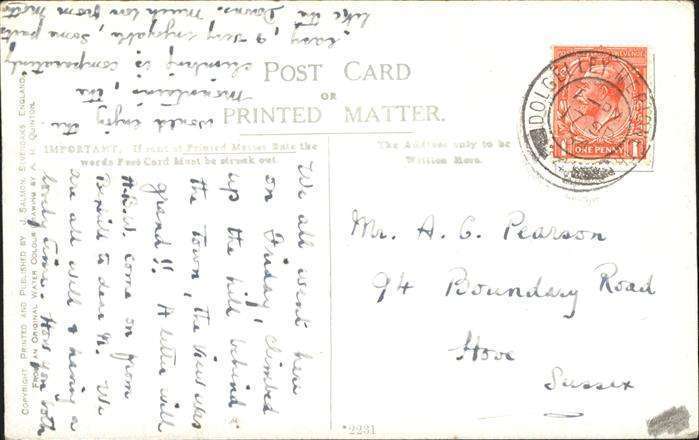 POST CARD
OR
PRINTED MATTER.
IMPORTANT. If sent at Printed Matter Rate the
words Post Card Must be struck out.
The Address only to be
Written Here.
DOLGELLEY
ONE PENNY
Mr. A. C. Pearson
94 Boundary Road
Hove
Sussex
We all went here
on Friday, climbed
up the hill behind
the town, the view was
grand!! A letter will
come on from
to dear N. We
are all well & having a
lovely time. Hope you both
would enjoy the
mountains, the
climbing is comparatively
easy, & very enjoyable, some parts
like the Downs. Much love from
COPYRIGHT. PRINTED AND PUBLISHED BY J. SALMON, SEVENOAKS, ENGLAND.
FROM AN ORIGINAL WATER COLOUR DRAWING BY A. R. QUINTON.
*2231